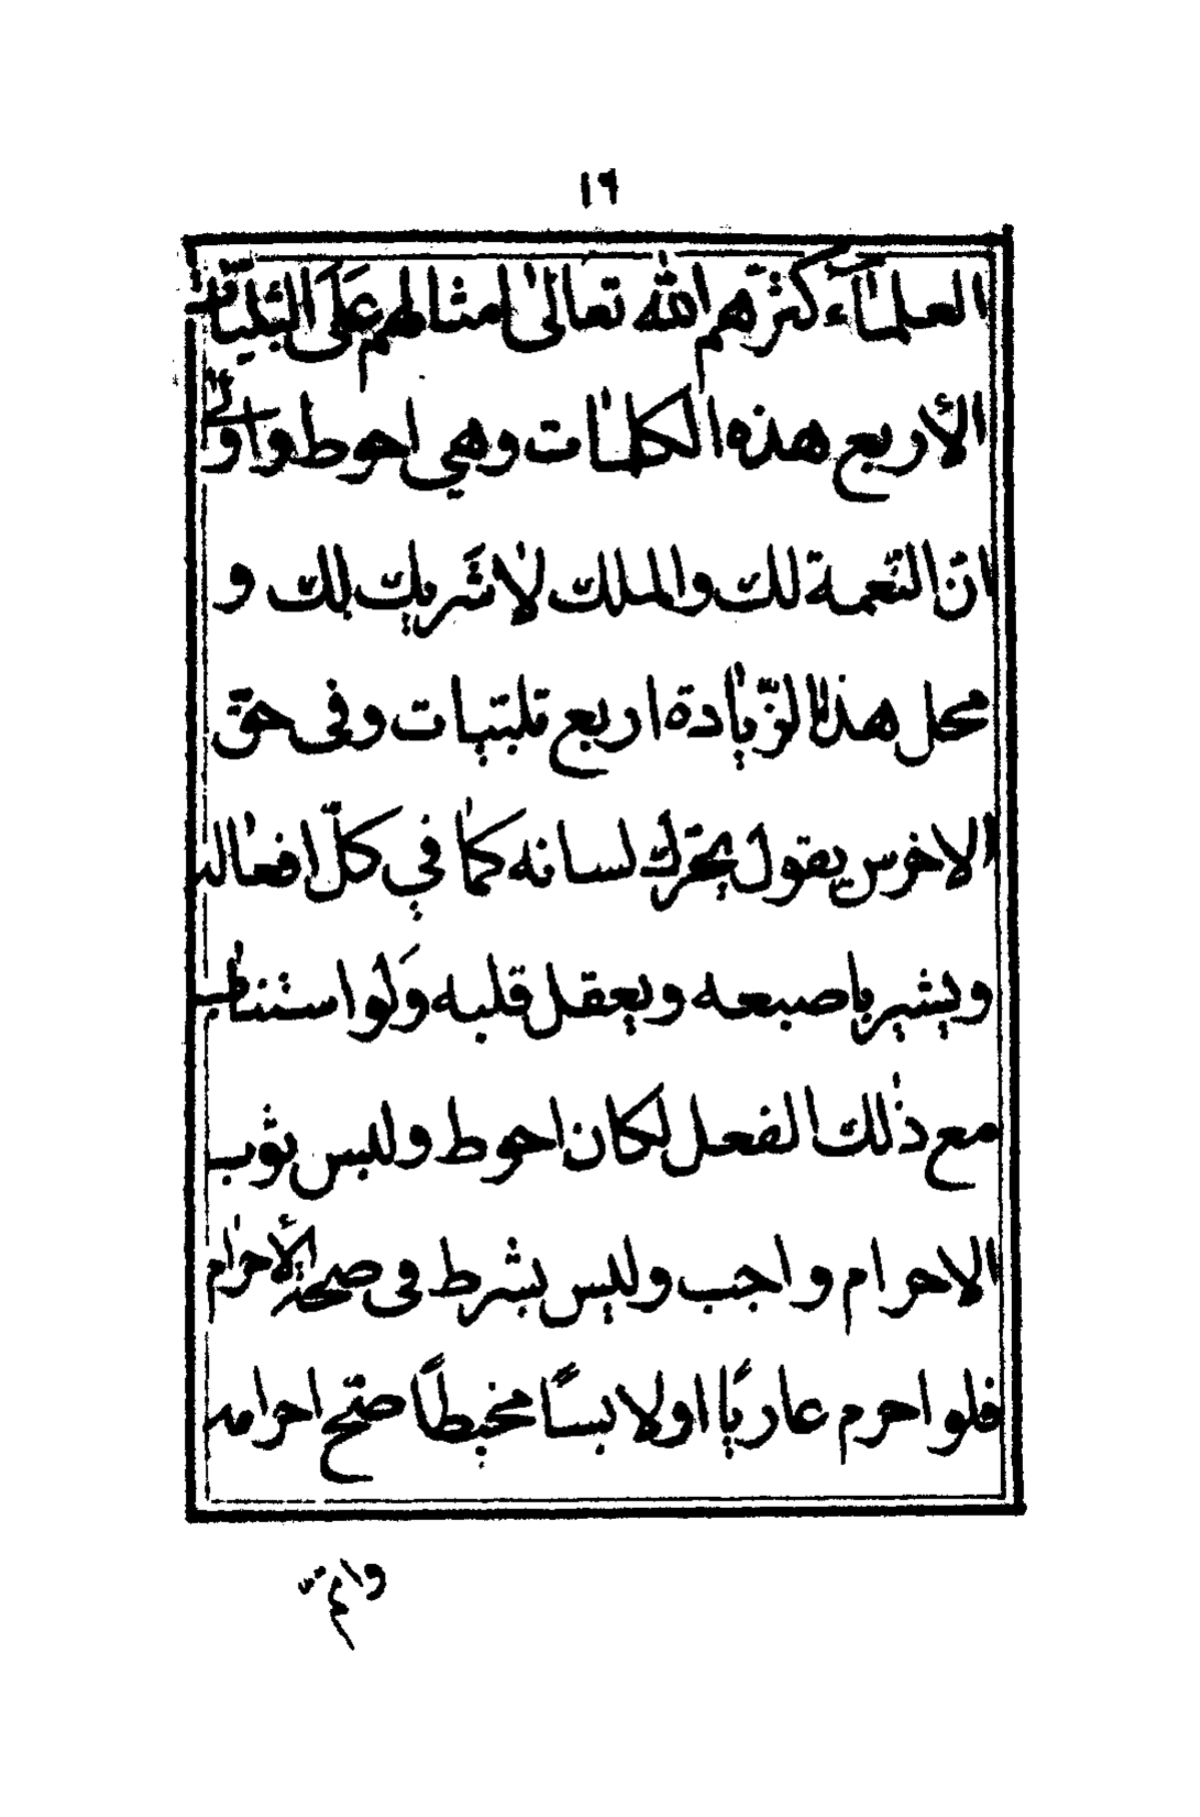 ١٩
العلمآء كثّرهم الله تعالى امثالهم على التلبيات
الأربع هذه الكلمات وهي احوط واولى
انّ النّعمة لك والملك لا شَريك لك و
محل هذه الزّيادة اربع تلبيات وفى حقّ
الاخرس يقول يحرّك لسانه كما في كلّ افعاله
ويشير باصبعه ويعقل قلبه وَلو استناب
مع ذلك الفعل لكان احوط ولبس ثوب
الاحرام واجب وليس بشرط فى صحة الأحرام
فلو احرم عاريًا اولابسًا مخيطًا صّح احرامه